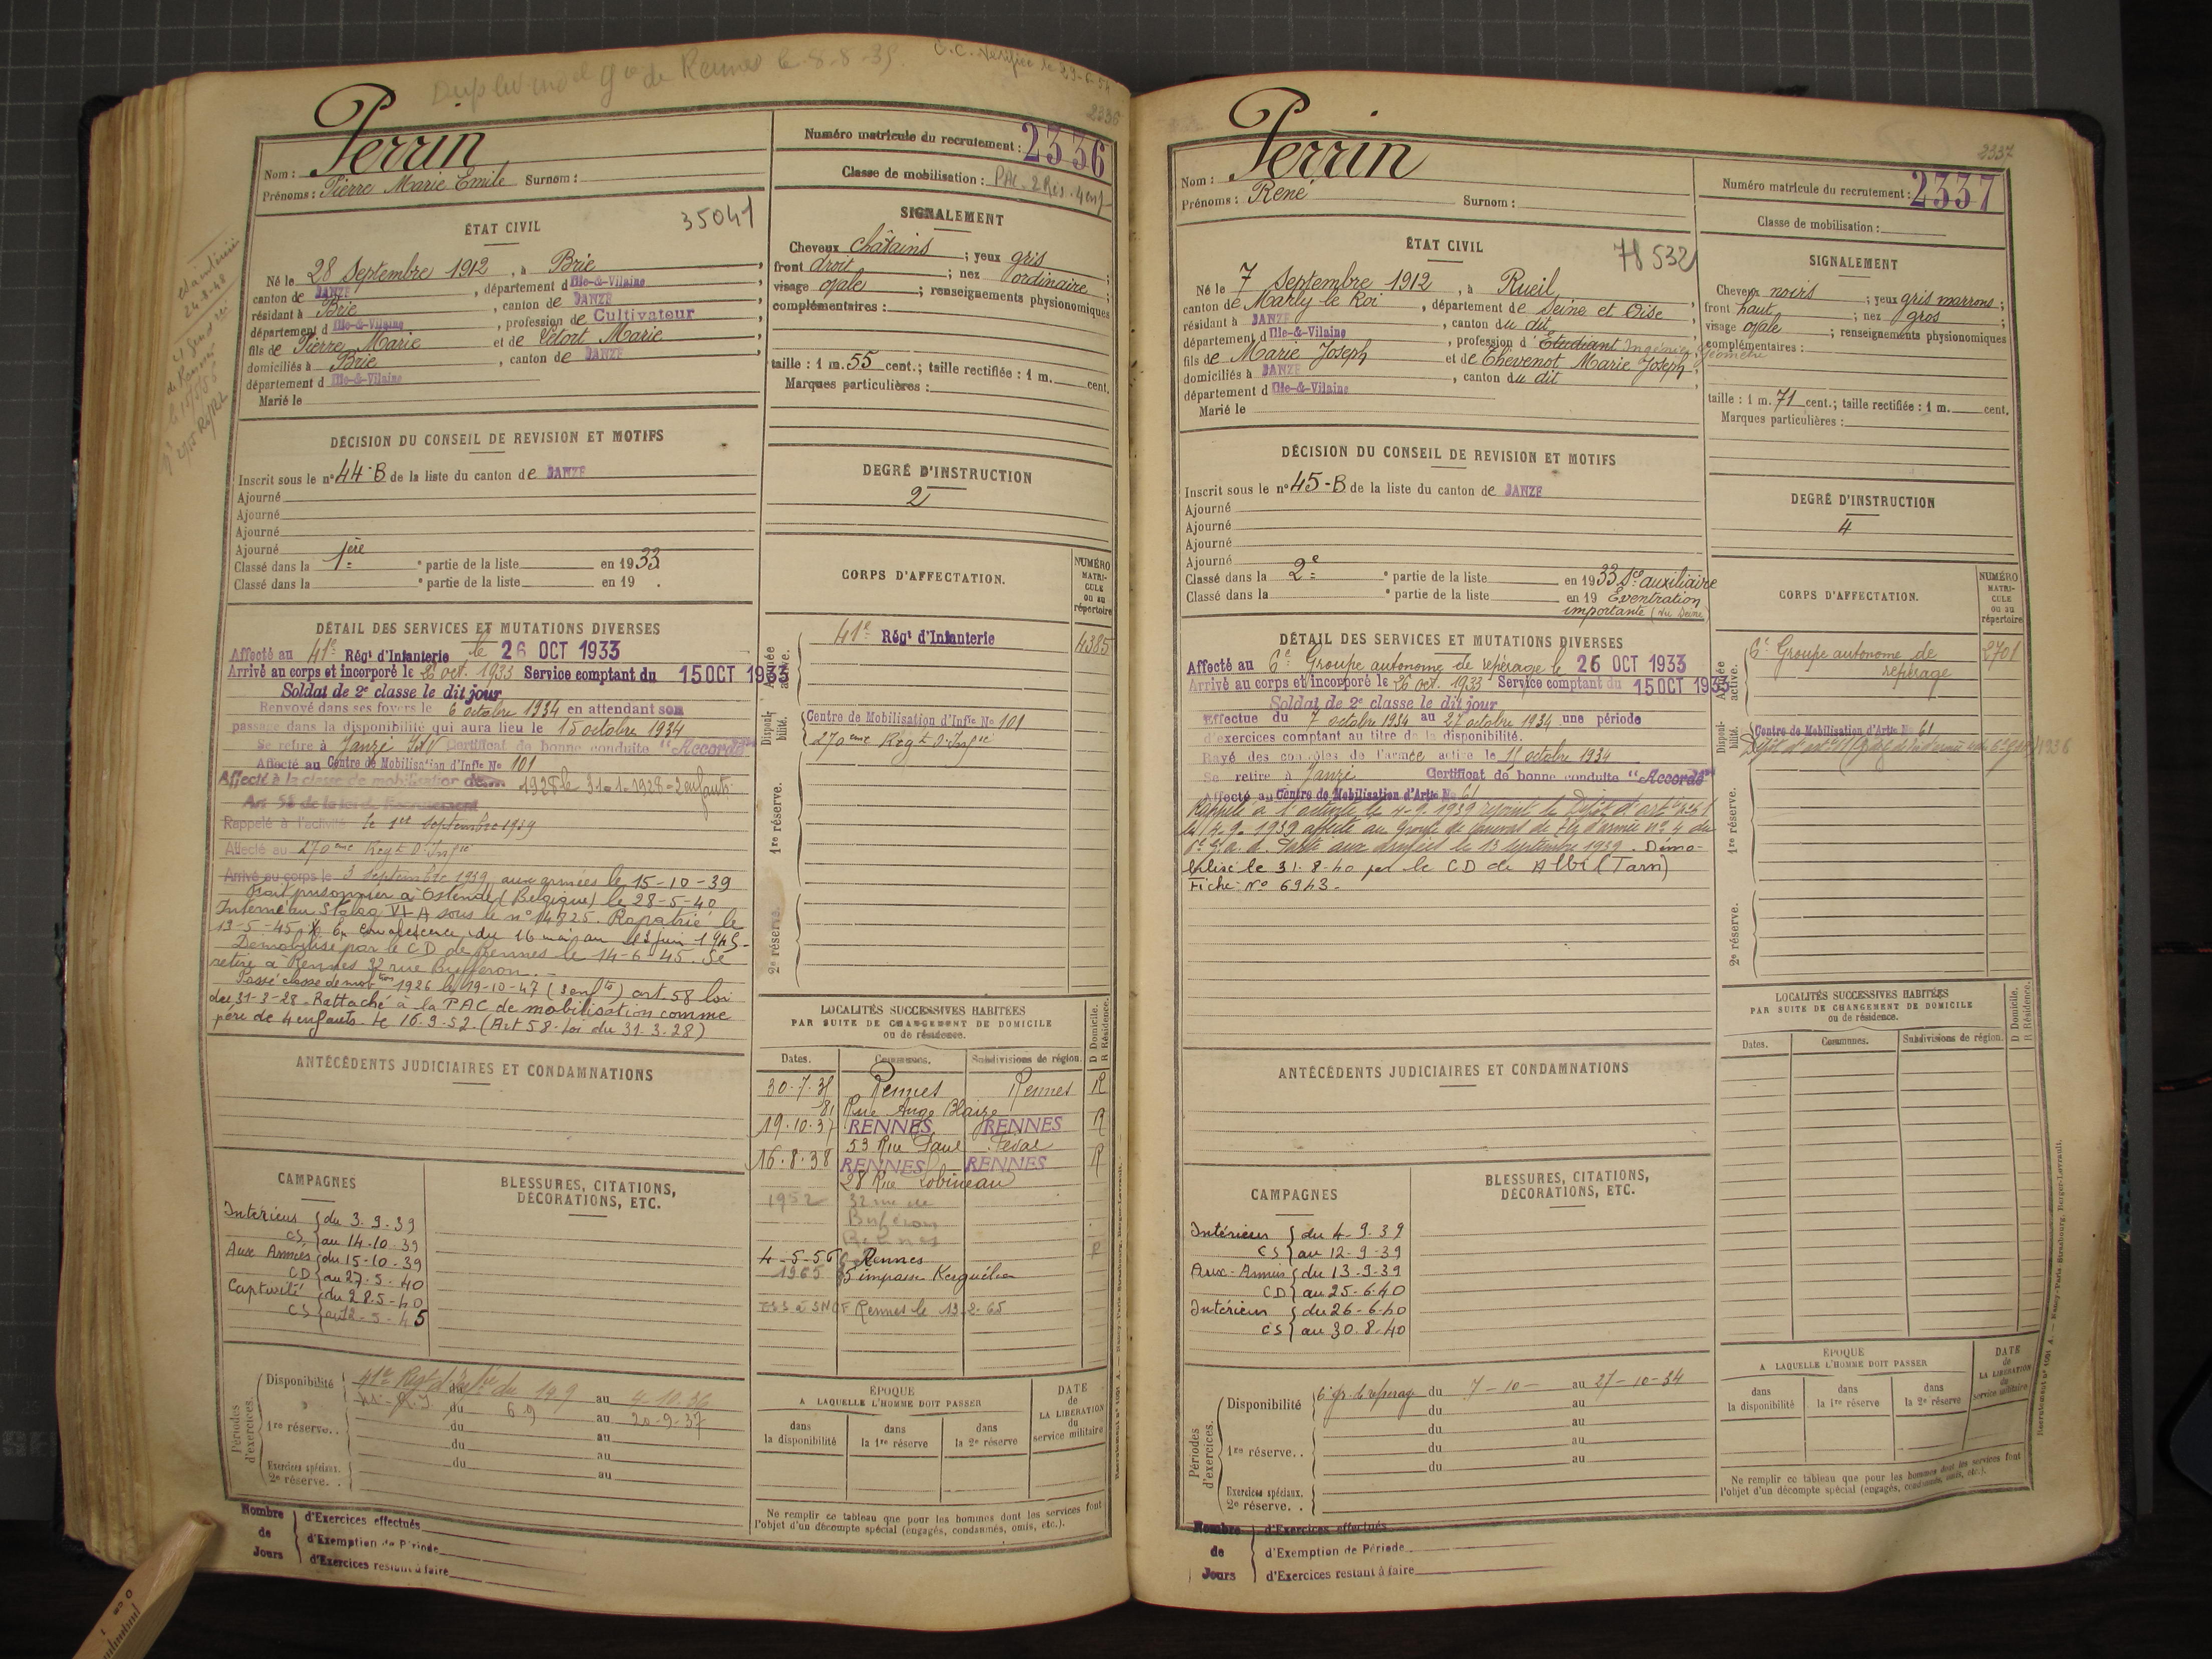 Duplicata de Rennes le 8-8-35.
C.C. Vérifiée le 29-6-54
2336
Perrin
Nom :
Prénoms : Pierre Marie Emile Surnom :
Numéro matricule du recrutement : 2336
Classe de mobilisation : PAC - 2 Rés. 4 enf
ÉTAT CIVIL
35041
Né le 28 Septembre 1912, à Brie,
canton de JANZÉ, département d'Ille-&-Vilaine,
résidant à Brie, canton de JANZÉ
département d'Ille-&-Vilaine, profession de Cultivateur
fils de Pierre Marie et de Létort Marie
domiciliés à Brie, canton de JANZÉ,
département d'Ille-&-Vilaine
Marié le
SIGNALEMENT
Cheveux châtains ; yeux gris ;
front droit ; nez ordinaire ;
visage ovale ; renseignements physionomiques
complémentaires :
taille : 1 m. 55 cent.; taille rectifiée : 1 m. cent.
Marques particulières :
DÉCISION DU CONSEIL DE REVISION ET MOTIFS
Inscrit sous le n° 44-B de la liste du canton de JANZÉ
Ajourné
Ajourné
Ajourné
Ajourné
Classé dans la 1ère ° partie de la liste en 1933
Classé dans la ° partie de la liste en 19 .
DEGRÉ D'INSTRUCTION
2
CORPS D'AFFECTATION.
NUMÉRO MATRICULE ou au répertoire
Armée active.
41e Régt d'Infanterie 4385
Disponibilité.
Centre de Mobilisation d'Infie No 101
270ème Régt d'Infie
1re réserve.
2e réserve.
DÉTAIL DES SERVICES ET MUTATIONS DIVERSES
Affecté au 41e Régt d'Infanterie le 26 OCT 1933
Arrivé au corps et incorporé le 26 oct. 1933 Service comptant du 15 OCT 1933
Soldat de 2e classe le dit jour
Renvoyé dans ses foyers le 6 octobre 1934 en attendant son
passage dans la disponibilité qui aura lieu le 15 octobre 1934
Se retire à Janzé I&V Certificat de bonne conduite "Accordé"
Affecté au Centre de Mobilisation d'Infie No 101
Affecté à la classe de mobilisation de 1928 le 31-1-1928 - 2 enfants
Art 58 de la loi de Recrutement
Rappelé à l'activité le 1er Septembre 1939
Affecté au 270ème Régt d'Infie
Arrivé au corps le 3 Septembre 1939 aux armées le 15-10-39
Fait prisonnier à Ostende (Belgique) le 28-5-40
Interné au Stalag VI A sous le n° 14725. Rapatrié le
13-5-45. En convalescence du 16 mai au 13 juin 1945-
Démobilisé par le CD de Rennes le 14-6-45. Se
retire à Rennes 32 rue Bufferon.-
Passé classe de mobtion 1926 le 19-10-47 (3 enfts) art. 58 loi
du 31-3-28. Rattaché à la PAC de mobilisation comme
père de 4 enfants. le 16.9.52 (Art 58 - loi du 31.3.28)
ANTÉCÉDENTS JUDICIAIRES ET CONDAMNATIONS
LOCALITÉS SUCCESSIVES HABITÉES
PAR SUITE DE CHANGEMENT DE DOMICILE
ou de résidence.
D Domicile. R Résidence.
Dates. Communes. Subdivisions de région.
30-7-35 Rennes Rennes R
81 Rue Ange Blaize
19.10.37 RENNES RENNES R
53 Rue Paul Féval
16.8.38 RENNES RENNES R
28 Rue Lobineau
1952 32 rue de
Buferon
Rennes
4-5-56 Rennes R
1965 5 impasse Kerguélen
SNCF Rennes le 13-2-65
CAMPAGNES
Intérieur du 3.9.39
CS au 14.10.39
Aux Armées du 15-10-39
CD au 27.5.40
Captivité du 28.5-40
CS au 12-5-45
BLESSURES, CITATIONS,
DÉCORATIONS, ETC.
Périodes d'exercices.
Disponibilité 41e Regt d'Infie du 14 9 au 4-10-36
du 6.9 au 20-9-37
1re réserve.. du au
du au
Exercices spéciaux. du au
2e réserve. .
ÉPOQUE
A LAQUELLE L'HOMME DOIT PASSER
dans la disponibilité
dans la 1re réserve
dans la 2e réserve
DATE de LA LIBÉRATION du service militaire
Ne remplir ce tableau que pour les hommes dont les services font
l'objet d'un décompte spécial (engagés, condamnés, omis, etc.).
Nombre de Jours
d'Exercices effectués
d'Exemption de Période
d'Exercices restant à faire
2337
Perrin
Nom :
Prénoms : René Surnom :
Numéro matricule du recrutement : 2337
Classe de mobilisation :
ÉTAT CIVIL
78532
Né le 7 Septembre 1912, à Rueil,
canton de Marly le Roi, département de Seine et Oise,
résidant à JANZÉ, canton du dit,
département d'Ille-&-Vilaine, profession d'Etudiant Ingénieur Géomètre
fils de Marie Joseph et de Thevenot Marie Joseph,
domiciliés à JANZÉ, canton du dit,
département d'Ille-&-Vilaine
Marié le
SIGNALEMENT
Cheveux noirs ; yeux gris marrons ;
front haut ; nez gros ;
visage ovale ; renseignements physionomiques
complémentaires :
taille : 1 m. 71 cent.; taille rectifiée : 1 m. cent.
Marques particulières :
DÉCISION DU CONSEIL DE REVISION ET MOTIFS
Inscrit sous le n° 45-B de la liste du canton de JANZÉ
Ajourné
Ajourné
Ajourné
Ajourné
Classé dans la 2e ° partie de la liste en 1933 Sce auxiliaire
Classé dans la ° partie de la liste en 19 Eventration
importante
DEGRÉ D'INSTRUCTION
4
CORPS D'AFFECTATION.
NUMÉRO MATRICULE ou au répertoire
Armée active.
6e Groupe autonome de 2701
repérage
Disponibilité.
Centre de Mobilisation d'Artie No 61
1re réserve.
2e réserve.
DÉTAIL DES SERVICES ET MUTATIONS DIVERSES
Affecté au 6e Groupe autonome de repérage le 26 OCT 1933
Arrivé au corps et incorporé le 26 oct. 1933 Service comptant du 15 OCT 1933
Soldat de 2e classe le dit jour
Effectue du 7 octobre 1934 au 27 octobre 1934 une période
d'exercices comptant au titre de la disponibilité.
Rayé des contrôles de l'armée active le 15 octobre 1934
Se retire à Janzé Certificat de bonne conduite "Accordé"
Affecté au Centre de Mobilisation d'Artie No 61
Rappelé à l'activité le 4-9-1939 rejoint le Dépôt d'artie n° 61
le 4-9-1939 affecté au Groupe de d'armée n° 4 du
6e G.a.r. Parti aux armées le 13 septembre 1939. Démo-
bilisé le 31.8.40 par le CD de Albi (Tarn)
Fiche N° 6943.
ANTÉCÉDENTS JUDICIAIRES ET CONDAMNATIONS
LOCALITÉS SUCCESSIVES HABITÉES
PAR SUITE DE CHANGEMENT DE DOMICILE
ou de résidence.
D Domicile. R Résidence.
Dates. Communes. Subdivisions de région.
CAMPAGNES
Intérieur du 4-9.39
CS au 12-9-39
Aux-Armées du 13-9-39
CD au 25-6.40
Intérieur du 26-6-40
CS au 30.8.40
BLESSURES, CITATIONS,
DÉCORATIONS, ETC.
Périodes d'exercices.
Disponibilité 6e gr. de repérage du 7-10- au 27-10-34
du au
du au
1re réserve.. du au
du au
Exercices spéciaux.
2e réserve. .
ÉPOQUE
A LAQUELLE L'HOMME DOIT PASSER
dans la disponibilité
dans la 1re réserve
dans la 2e réserve
DATE de LA LIBÉRATION du service militaire
Ne remplir ce tableau que pour les hommes dont les services font
l'objet d'un décompte spécial (engagés, condamnés, omis, etc.).
Nombre de Jours
d'Exercices effectués
d'Exemption de Période
d'Exercices restant à faire